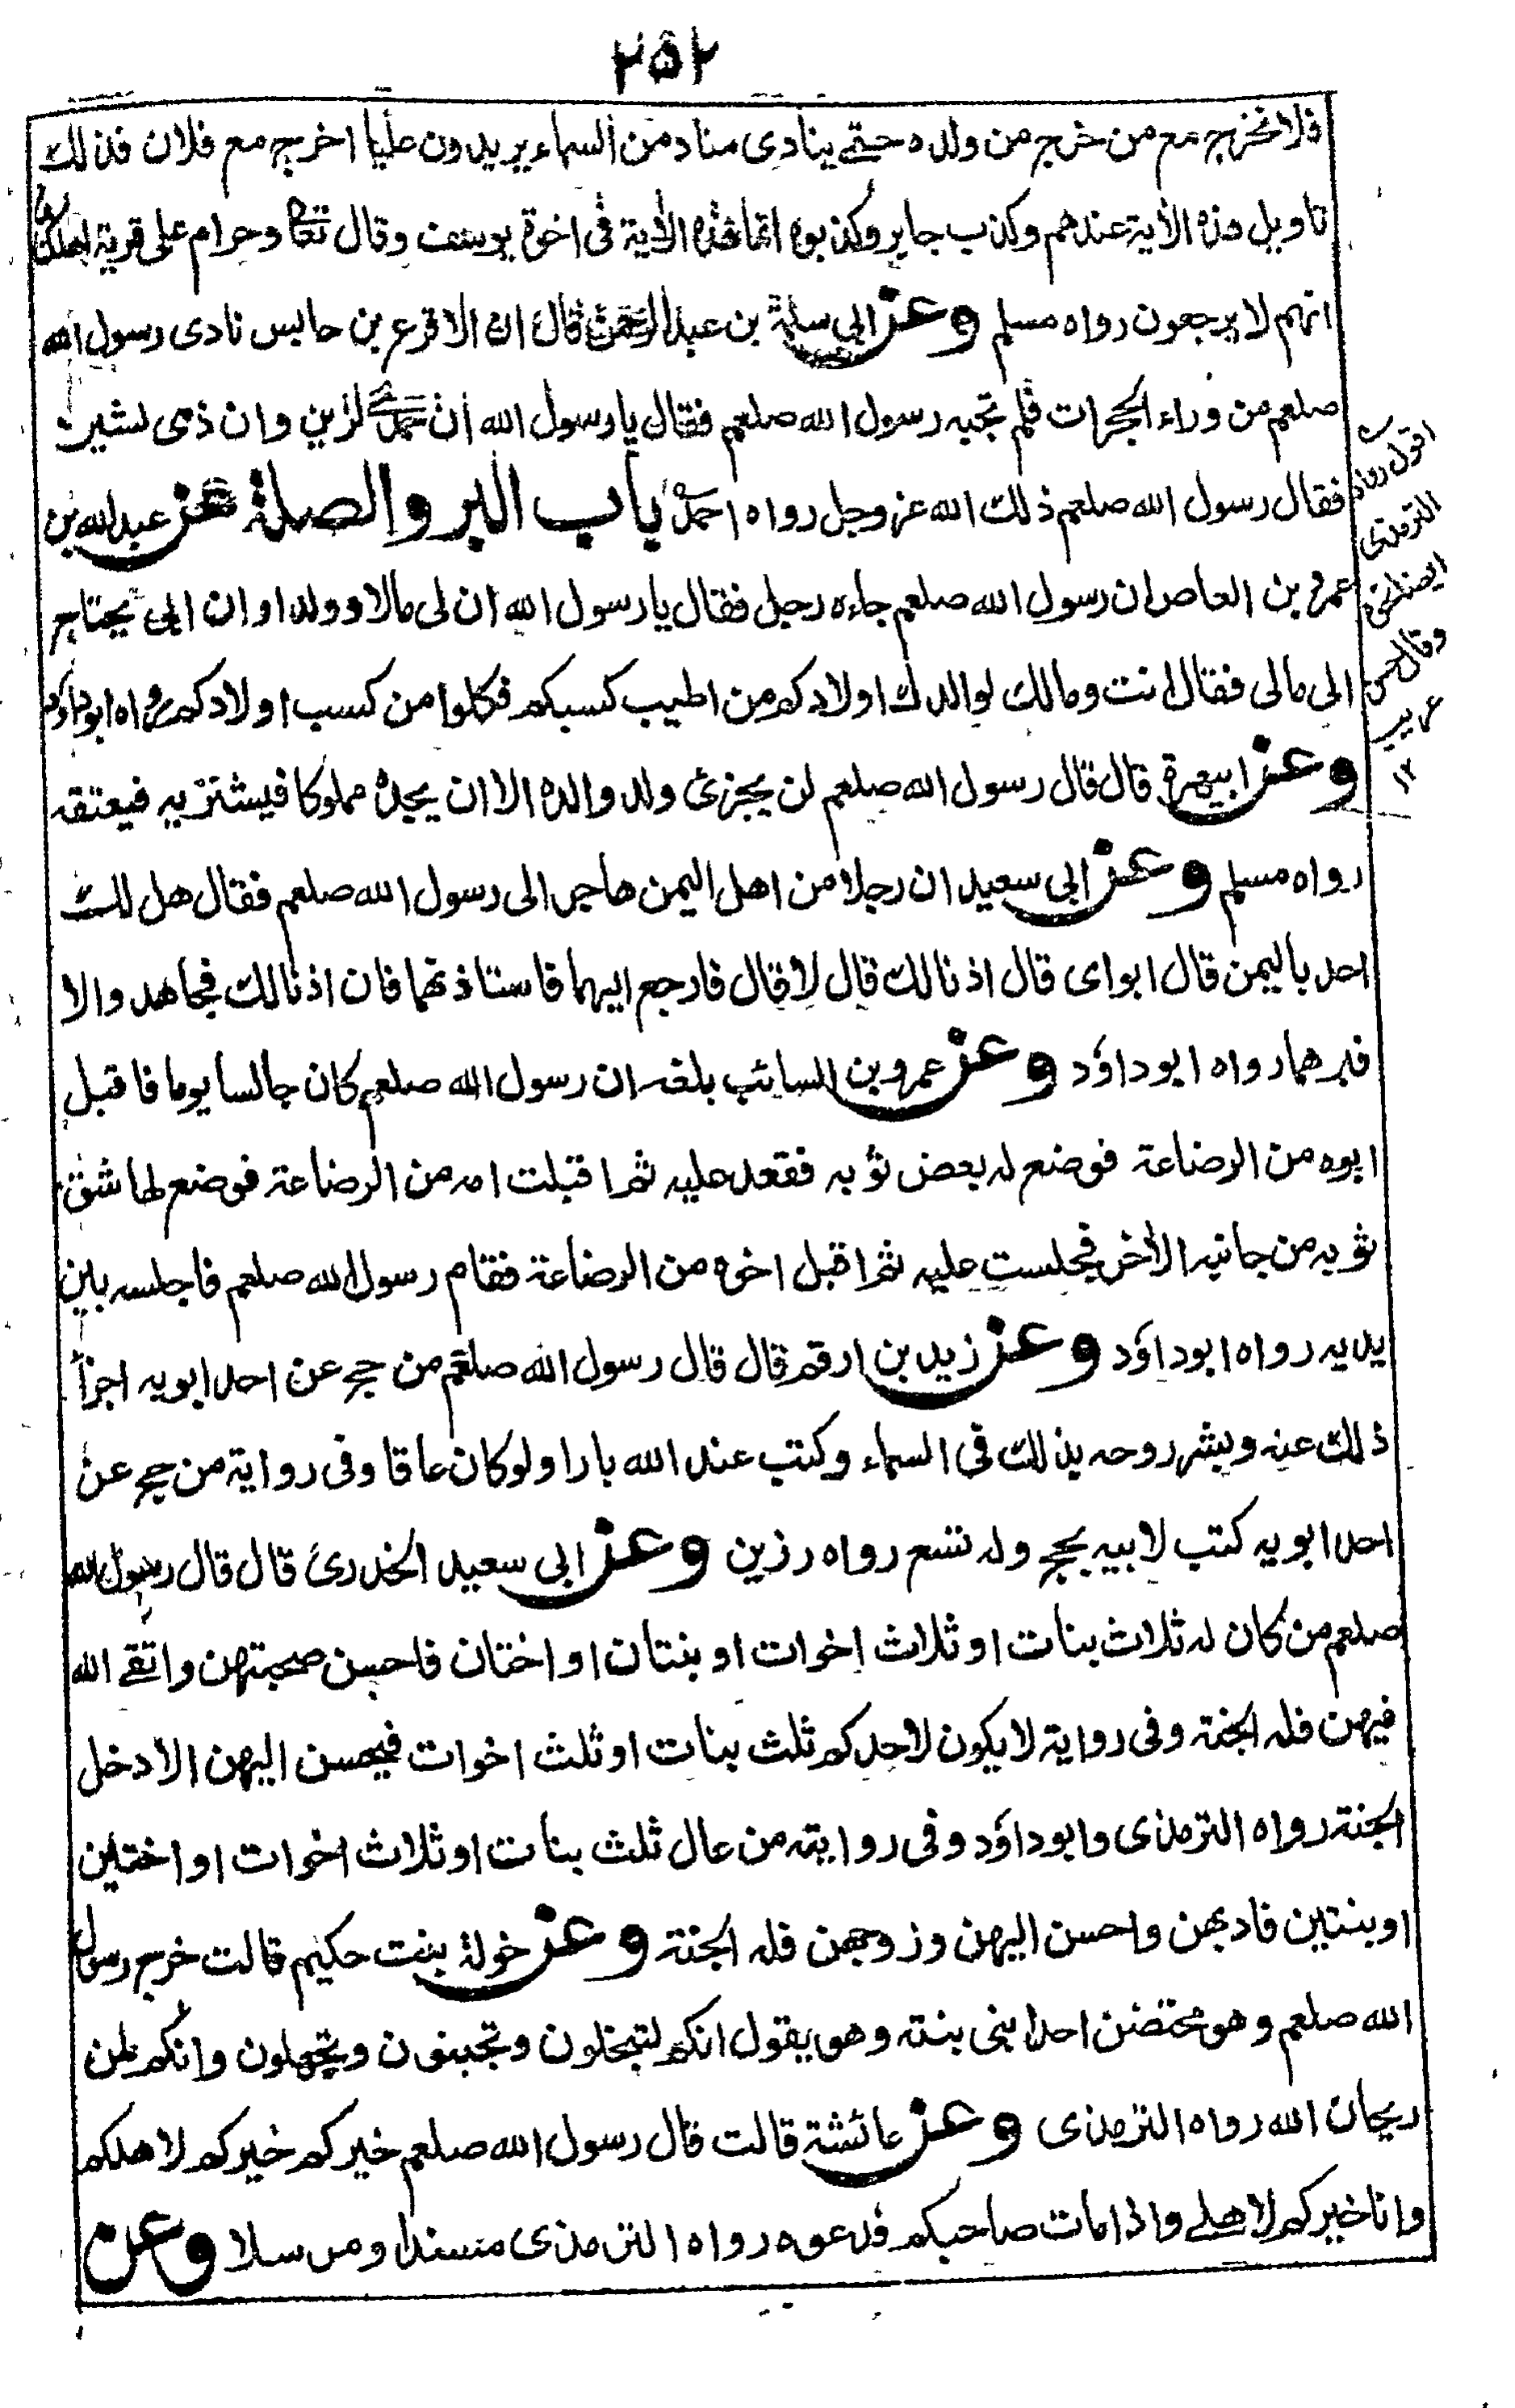 ٢٥٢
فلا نخرج مع من خرج من ولده حتى ينادى مناد من السماء يريدون عليا اخرج مع فلان فذلك
تاويل هذه الأية عندهم وكذب جابر وكذبوه انما هذه الأية فى اخوة يوسف وقال تعا وحرام على قرية اهلكناها
انهم لا يرجعون رواه مسلم وعن ابى سلمة بن عبد الرحمن قال ان الاقرع بن حابس نادى رسول الله
صلعم من وراء الحجرات فلم تجبه رسول الله صلعم فقال يا رسول الله ان حمدى لزين وان ذمى لشين
فقال رسول الله صلعم ذلك الله عز وجل رواه احمد باب البر والصلة عن عبد الله بن
عمرو بن العاص ان رسول الله صلعم جاءه رجل فقال يا رسول الله ان لى مالا وولدا وان ابى يحتاج
الى مالى فقال انت ومالك لوالدك اولادكم من اطيب كسبكم فكلوا من كسب اولادكم رواه ابوداؤد
وعن ابيهرة قال قال رسول الله صلعم لن يجزئ ولد والده الا ان يجده مملوكا فيشتريه فيعتقه
رواه مسلم وعن ابى سعيد ان رجلا من اهل اليمن هاجر الى رسول الله صلعم فقال هل لك
احد باليمن قال ابواى قال اذنا لك قال لا قال فارجع اليهما فاستاذنهما فان اذنا لك فجاهد والا
فبرهما رواه ابوداؤد وعن عمرو بن السائب بلغه ان رسول الله صلعم كان جالسا يوما فاقبل
ابوه من الرضاعة فوضع له بعض ثوبه فقعد عليه ثم اقبلت امه من الرضاعة فوضع لها شق
ثوبه من جانبه الأخر فجلست عليه ثم اقبل اخوه من الرضاعة فقام رسول الله صلعم فاجلسه بين
يديه رواه ابوداؤد وعن زيد بن ارقم قال قال رسول الله صلعم من حج عن احد ابويه اجزأ
ذلك عنه وبشر روحه بذلك فى السماء وكتب عند الله بارا ولو كان عاقا وفى رواية من حج عن
احد ابويه كتب لابيه بحج وله تسع رواه رزين وعن ابى سعيد الخدرى قال قال رسول الله
صلعم من كان له ثلاث بنات او ثلاث اخوات او بنتان او اختان فاحسن صحبتهن واتقى الله
فيهن فله الجنة وفى رواية لا يكون لاحدكم ثلث بنات او ثلث اخوات فيحسن اليهن الا دخل
الجنة رواه الترمذى وابوداؤد وفى روايته من عال ثلث بنات او ثلاث اخوات او اختين
او بنتين فادبهن واحسن اليهن وزوجهن فله الجنة وعن خولة بنت حكيم قالت خرج رسول
الله صلعم وهو محتضن احد ابنى بنته وهو يقول انكم لتبخلون وتجبنون وتجهلون وانكم لمن
ريحان الله رواه الترمذى وعن عائشة قالت قال رسول الله صلعم خيركم خيركم لاهلكم
وانا خيركم لاهلى واذا مات صاحبكم فدعوه رواه الترمذى مسندا ومرسلا وعن
اقول رواه
الترمذى
ايضا
وقال حسن
غريب
١٢